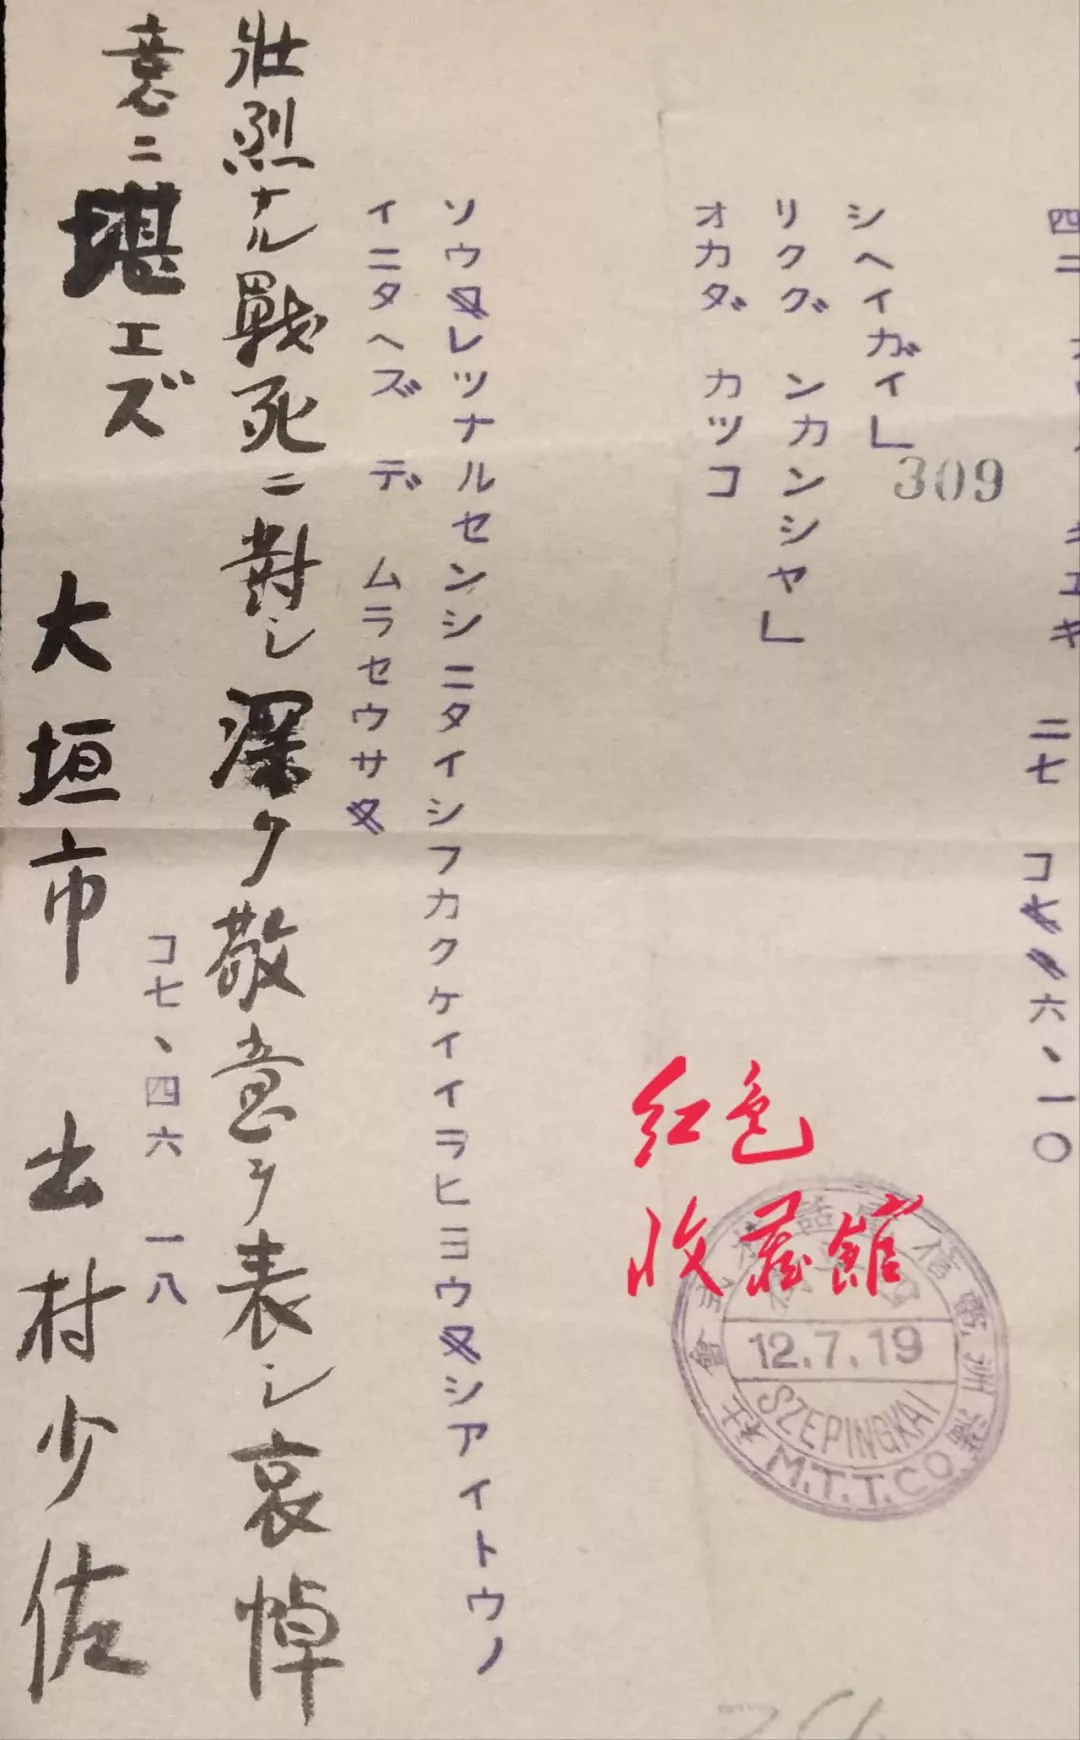 二七 コ 六、一〇
シヘイガイ」
リクグンカンシヤ」
オカダ カツコ
309
ソウレツナルセンシニタイシフカクケイイヲヒヨウシアイトウノ
イニタヘズ デムラセウサ
壯烈ナル戰死ニ對シ深ク敬意ヲ表シ哀悼
意ニ堪エズ
コ七、四六 一八
大垣市 出村少佐
红色
收藏館
12.7.19
SZEPINGKAI
M.T.T.CO.
滿洲電信電話株式會社